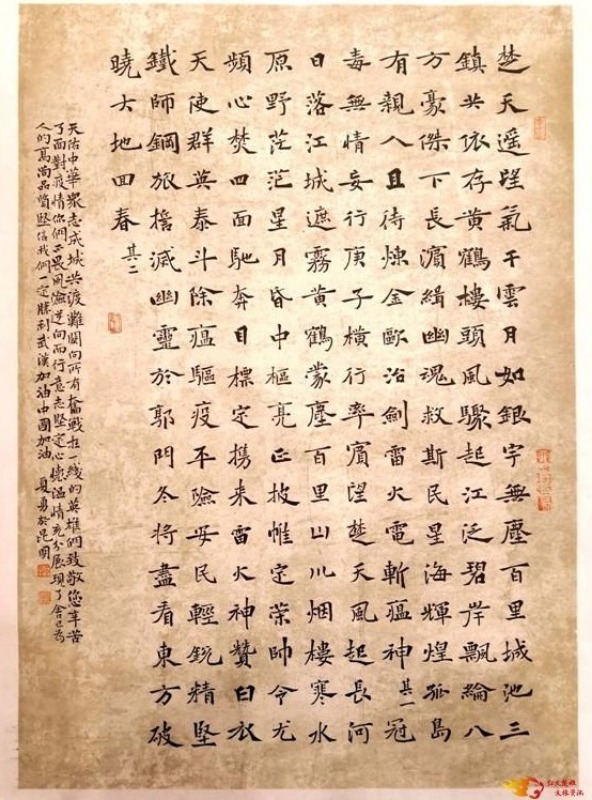 楚天遥氣干雲月如銀宇無塵百里城池三
鎮共依存黄鶴樓頭風驟起江泛碧岸飄綸八
方豪傑下長濱緝幽魂救斯民星海輝煌孤島
有親人且待煉金歐冶劍雷火電斬瘟神 其一 冠
毒無情妄行庚子橫行率濱望楚天風起長河
日落江城遮霧黄鶴蒙塵百里山川烟樓寒水
原野茫茫星月昏中樞亮正披帷定策帥令尤
頻心焚四面馳奔目標定攜来雷火神贊白衣
天使群英泰斗除瘟驅疫平險安民輕銳精堅
鐵師鋼旅擔滅幽靈於郭門冬將盡看東方破
曉大地回春 其二
天佑中華眾志成城共渡難關向所有奮戰在一綫的英雄們致敬您辛苦
了面對疫情你們不畏風險逆向而行意志堅定心懷温情充分展現了舍己為
人的高尚品質堅信我們一定勝利武漢加油中國加油 夏勇於昆明